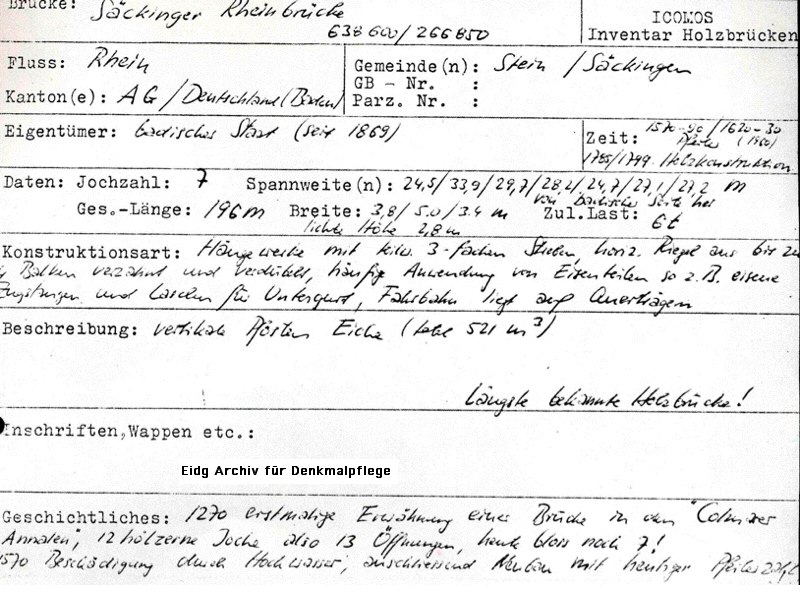 Brücke: Säckinger Rheinbrücke
638 600/266850
ICOMOS
Inventar Holzbrücken
Fluss: Rhein
Kanton(e): AG/Deutschland (Baden)
Gemeinde(n): Stein / Säckingen
GB - Nr. :
Parz. Nr. :
Eigentümer: badischer Staat (seit 1869)
Zeit: 1570-90/1620-30
Pfeiler (1960)
1785/1799 Holzkonstruktion
Daten: Jochzahl: 7 Spannweite(n): 24,5/33,9/29,7/28,2/24,7/27,1/27,2 m
von badischer Seite her
Ges.-Länge: 196 m Breite: 3,8/5.0/3.4 m Zul.Last: 6t
lichte Höhe 2,8 m
Konstruktionsart: Hängewerke mit 3-fachen Streben, horiz. Riegel aus bis zu
4 Balken verzahnt und verdübelt, häufige Anwendung von Eisenteilen so z.B. eiserne
und Laschen für Untergurt, Fahrbahn liegt auf Querträgern
Beschreibung: vertikale Pfosten Eiche (total 521 m³)
Längste bekannte Holzbrücke!
Inschriften,Wappen etc.:
Eidg Archiv für Denkmalpflege
Geschichtliches: 1270 erstmalige Erwähnung einer Brücke in den "Colmarer
Annalen", 12 hölzerne Joche also 13 Öffnungen, heute bloss noch 7!
1570 Beschädigung durch Hochwasser, anschliessend Neubau mit heutiger Pfeilerzahl